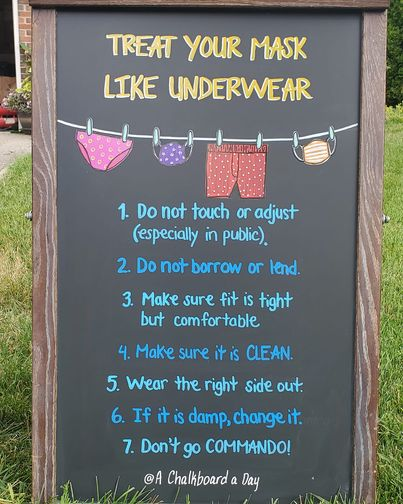 TREAT YOUR MASK
LIKE UNDERWEAR
1. Do not touch or adjust
(especially in public).
2. Do not borrow or lend.
3. Make sure fit is tight
but comfortable
4. Make sure it is CLEAN.
5. Wear the right side out.
6. If it is damp, change it.
7. Don't go COMMANDO!
@A Chalkboard a Day